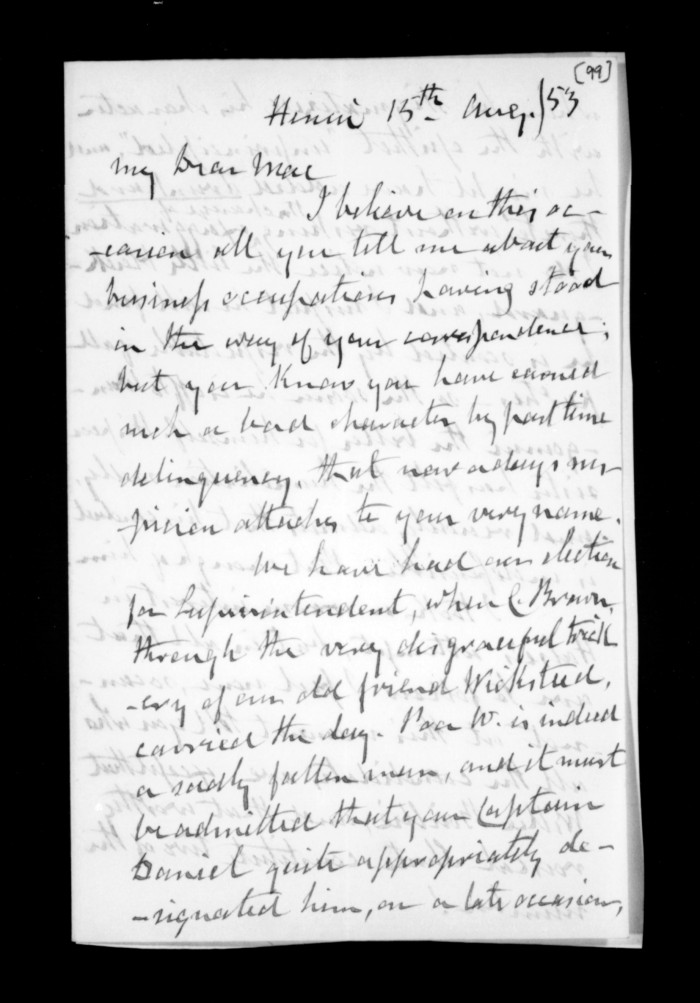 [99]
Henui 15th Augt/53
My Dear Mac
I believe on this oc-
-casion all you tell me about your
business occupations having stood
in the way of your correspondence;
but you know you have earned
such a bad character by past time
delinquency, that now a days sus-
picion attaches to your very name.
We have had our election
for Superintendent, when C Brown,
through the very disgraceful trick
-ery of our old friend Wicksteed,
carried the day. Poor W. is indeed
a sadly fallen man, and it must
be admitted that your Captain
Daniel quite appropriately de-
-signated him, on a late occasion,